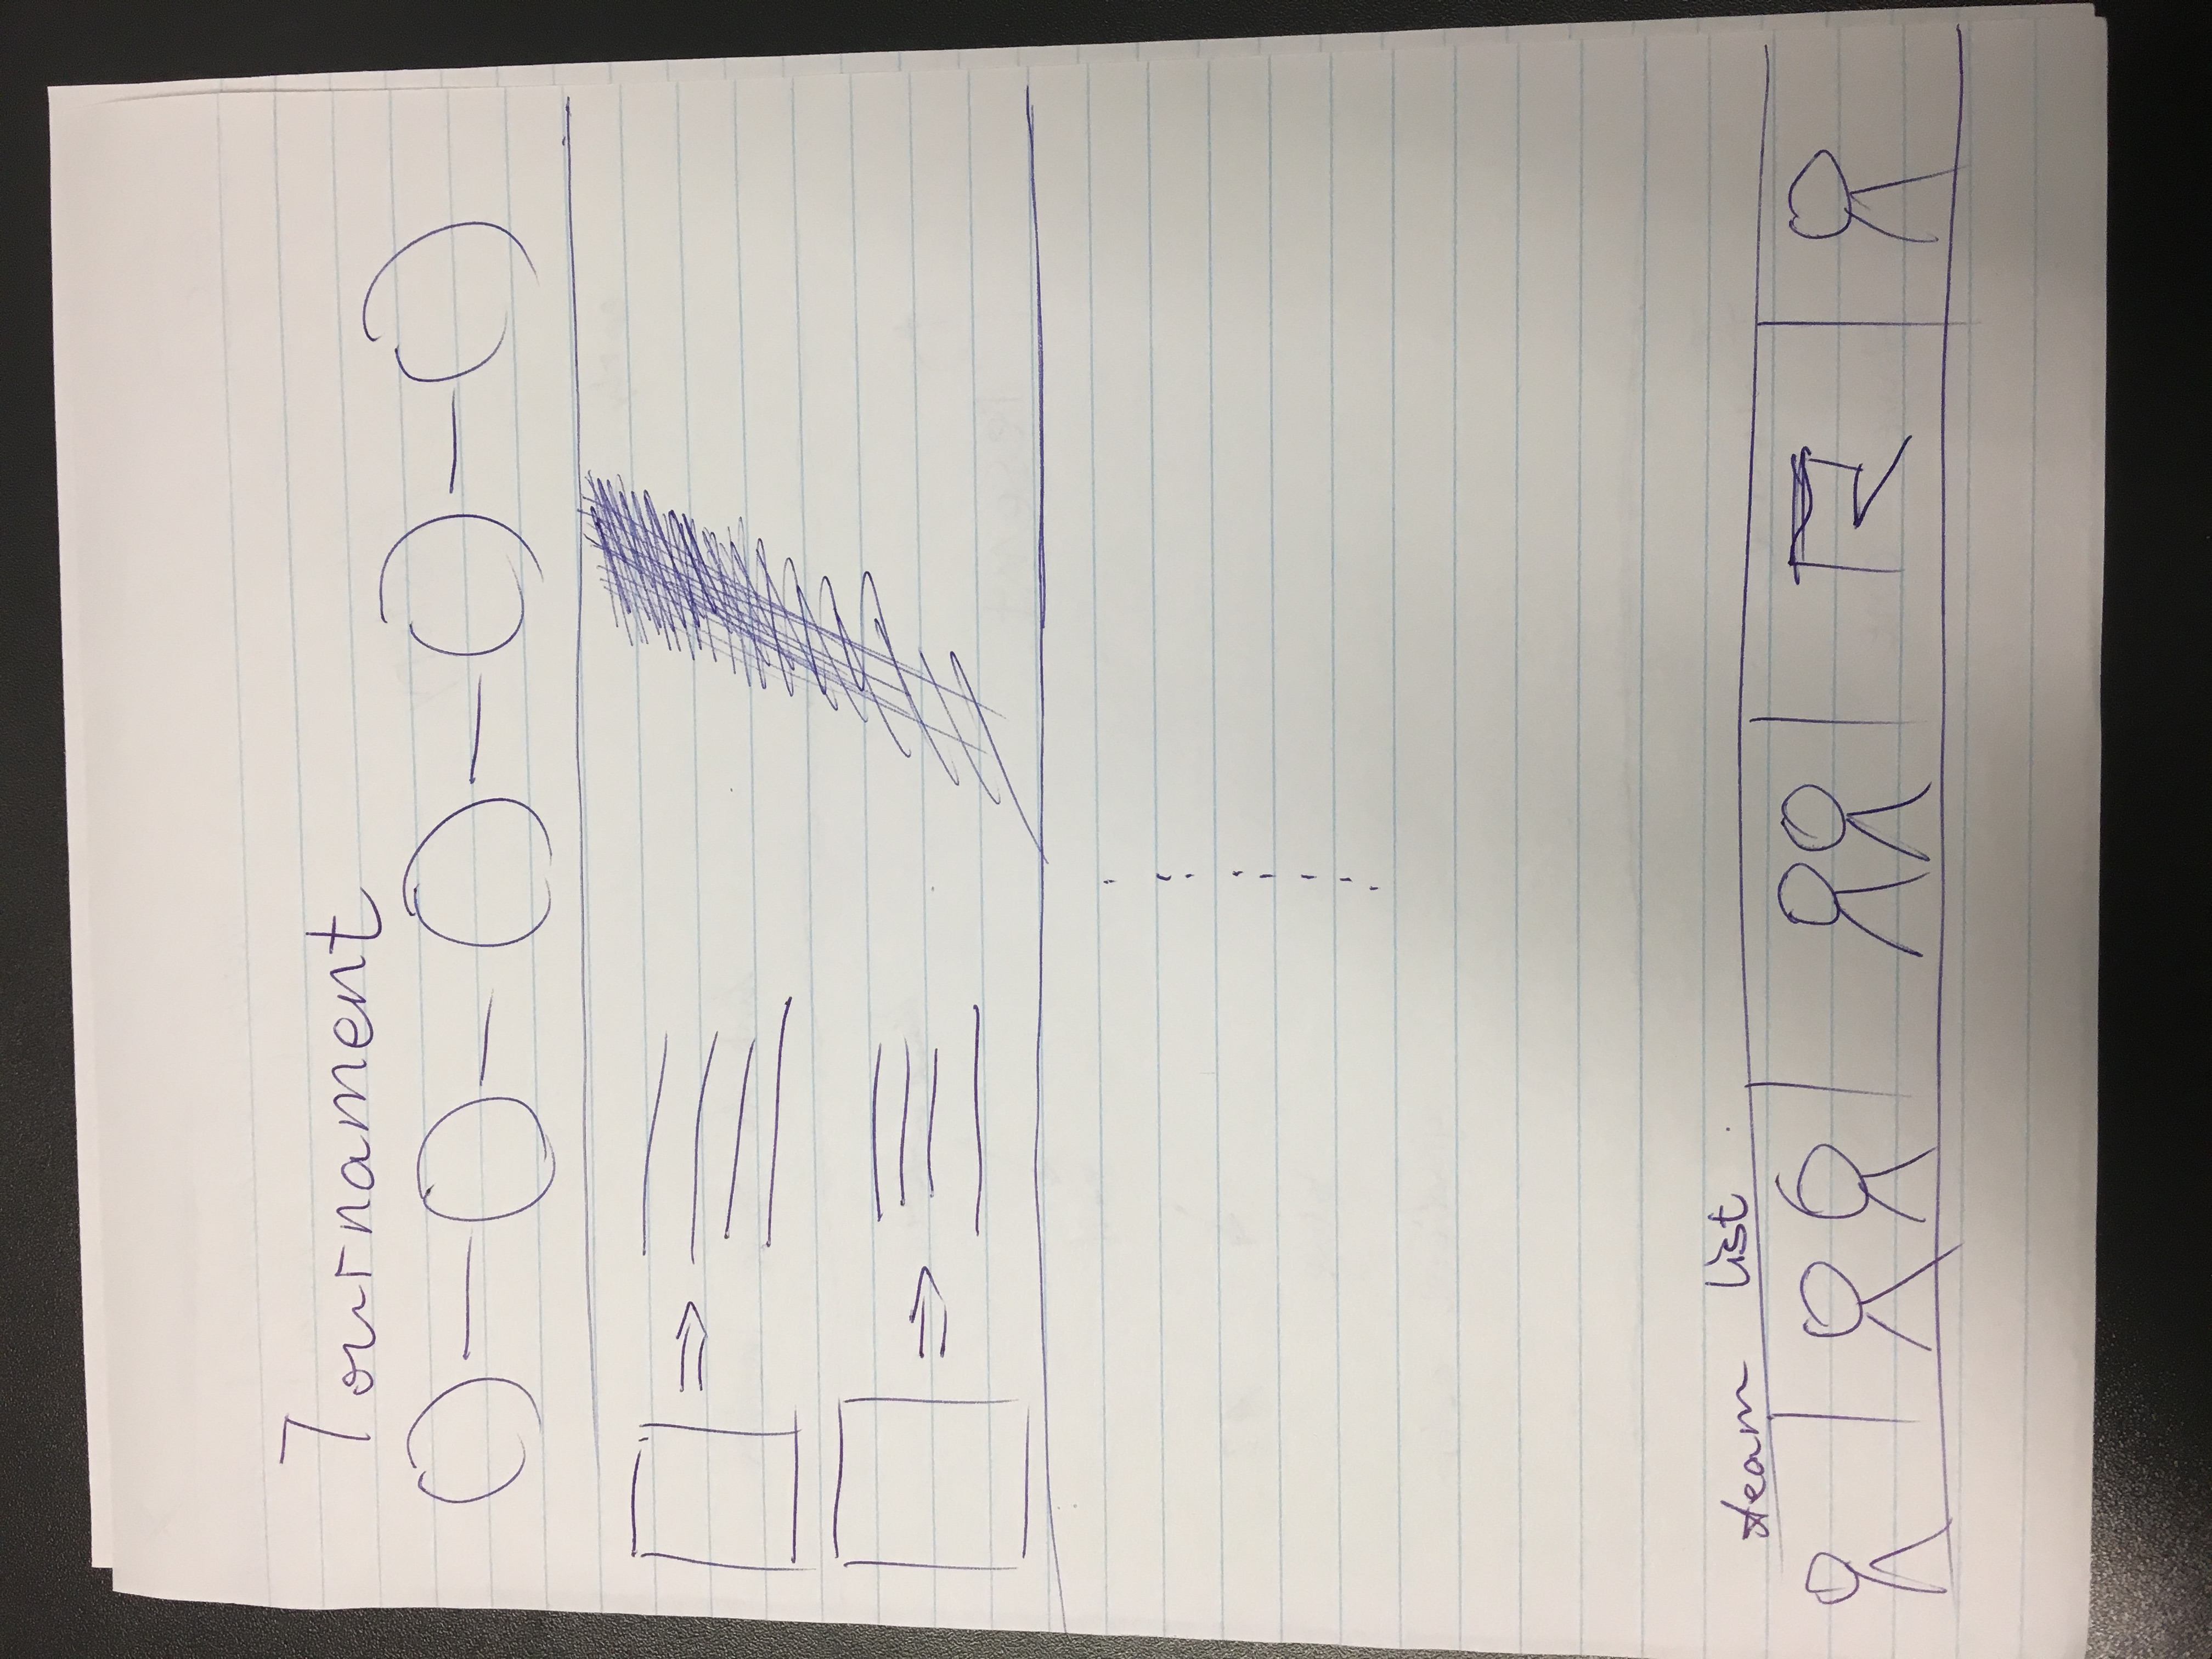 Tournament
team list